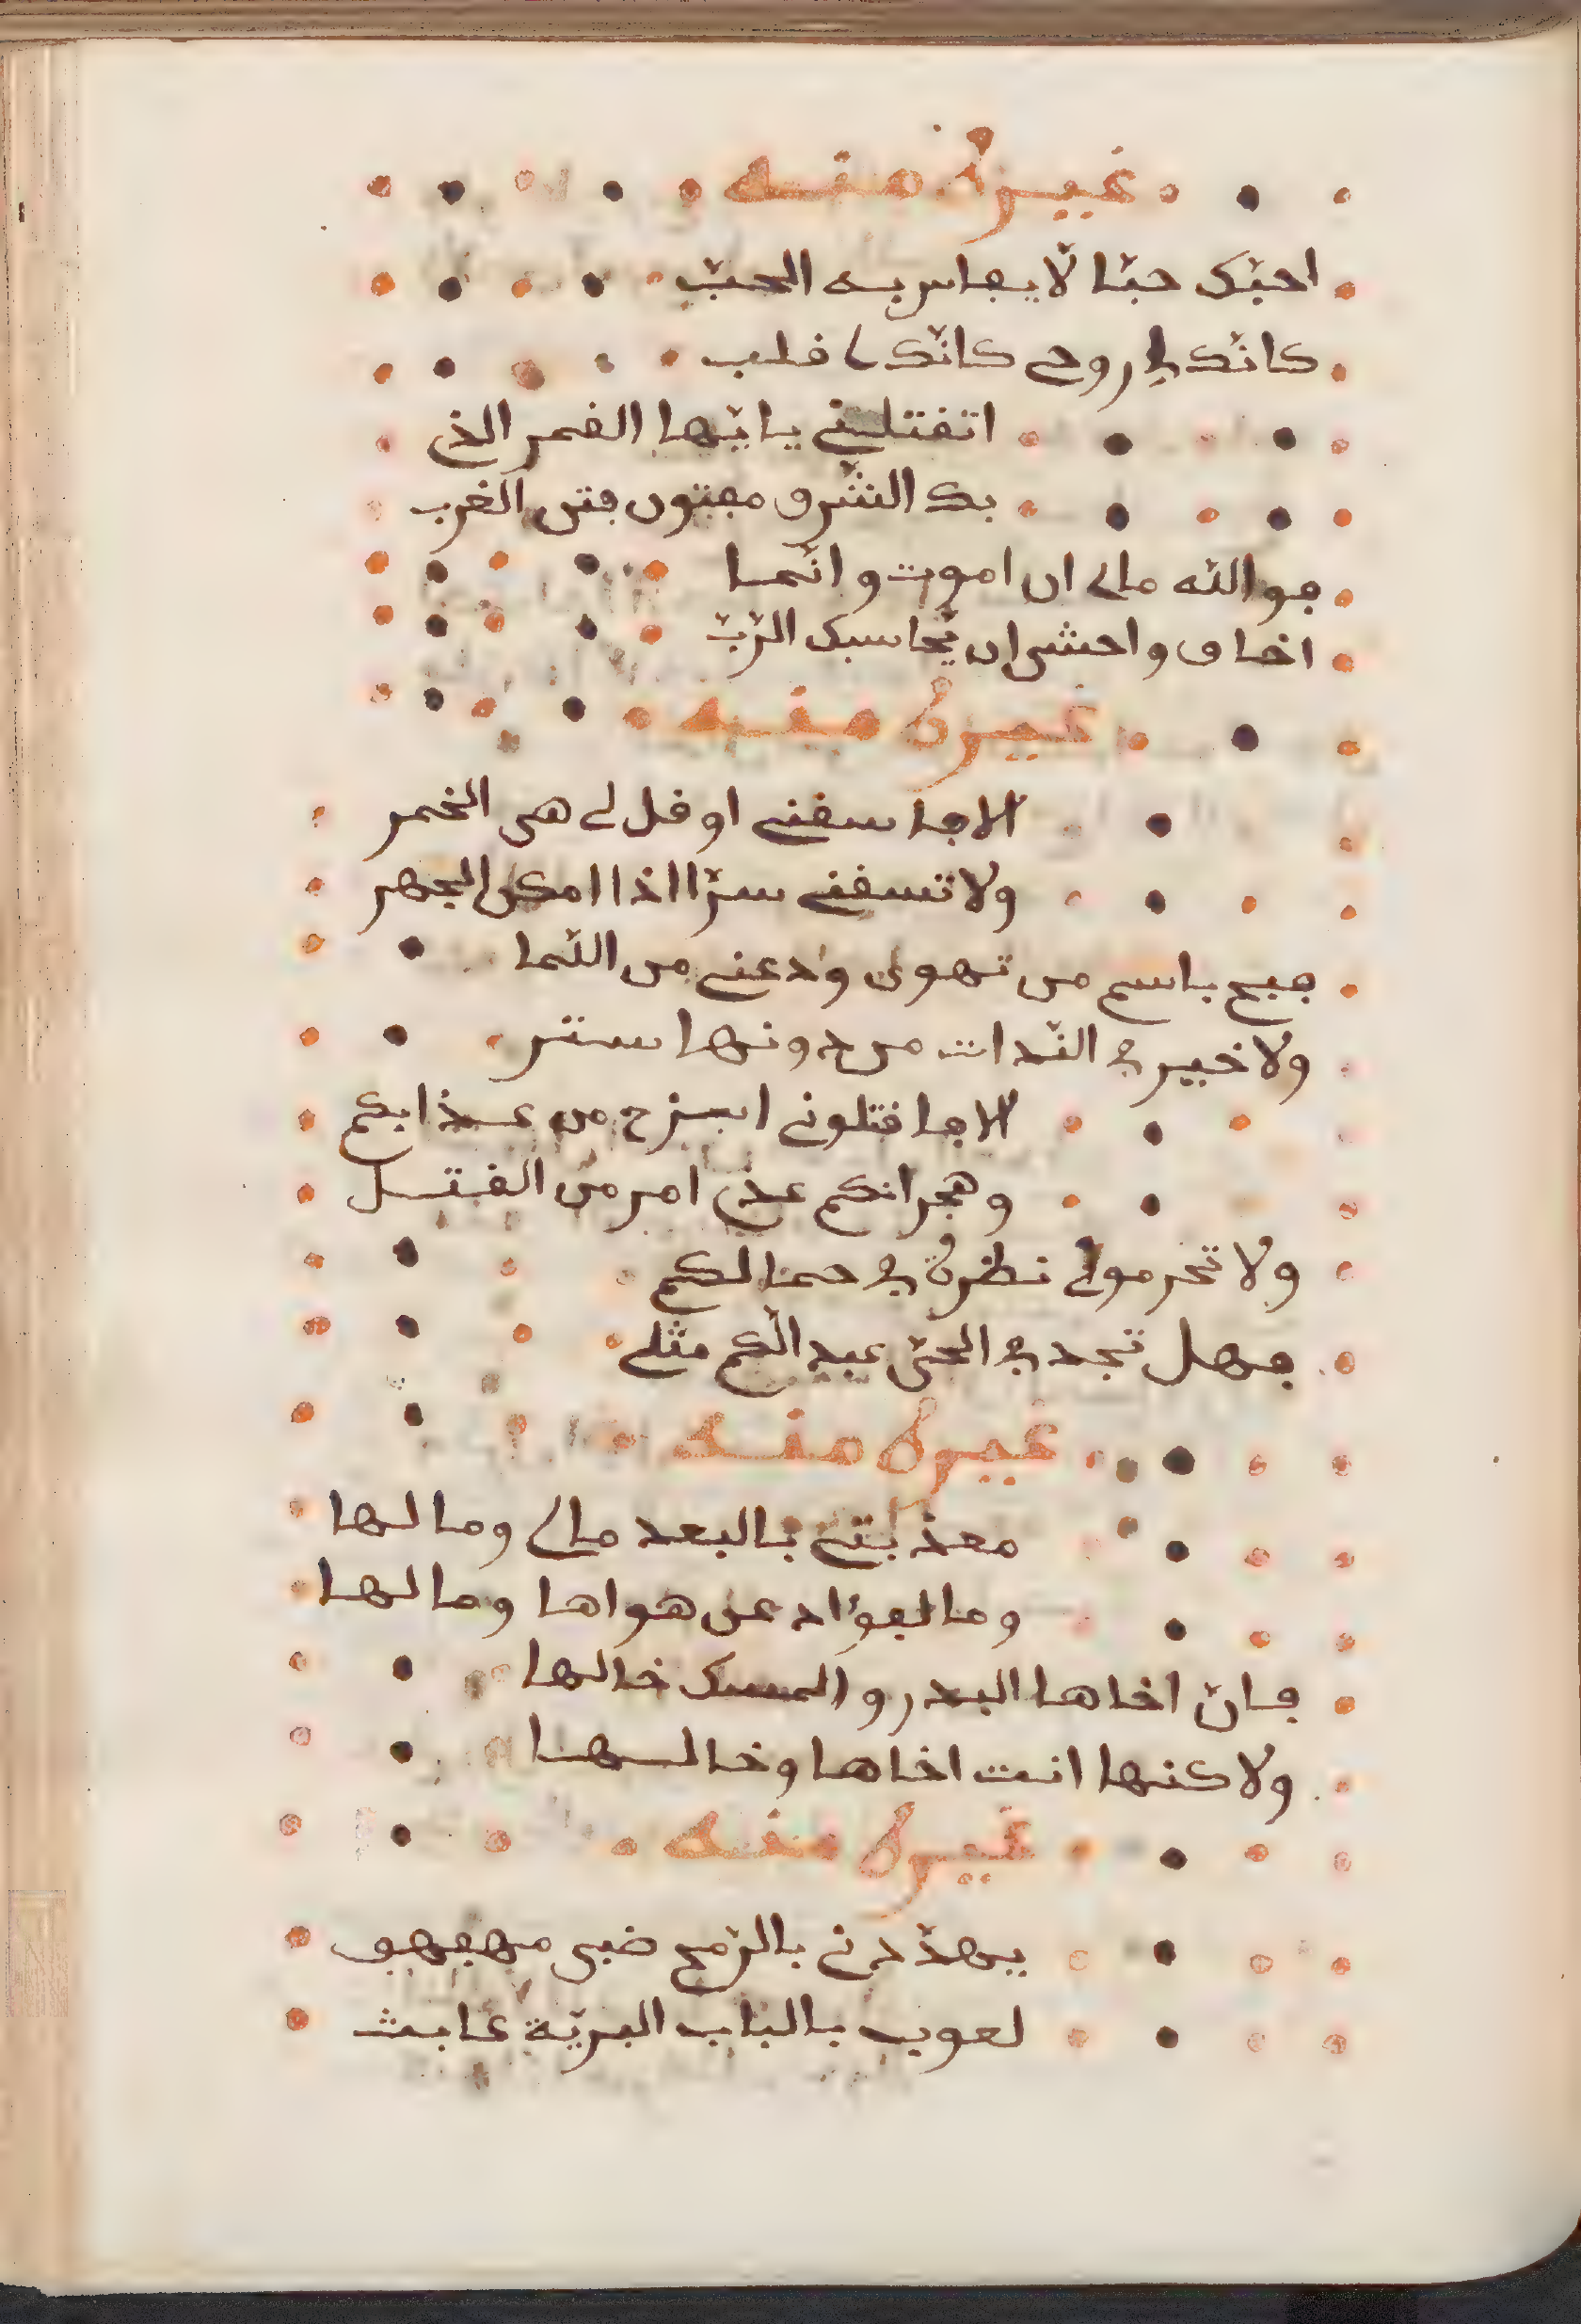 غيره منه
احبّك حبّا لّا يفاس به الحبّ
كانّك لي روح كانّك لي قلب
اتقتلني يا يّها القمر الذي
بك الشّرق مفتون فتن الغرب
فوالله مالي ان اموت وانّما
اخاف واخشى ان يّحاسبك الرّبّ
غيره منه
الا فاسقني او قل لي هي الخمر
ولا تسقني سرّا اذا امكن الجهر
فبح باسم من تهوى ودعني من اللّما
ولا خير في اللّذات من دونها ستر
الا فاقتلوني استرح من عذابكم
وهجرانكم عندي امر من القتل
ولا تحرموني نظرة في جمالكم
فهل تجد في الحيّ عبد الّكم مثلي
غيره منه
معذبتي بالبعد مالي وما لها
وما لفؤاد عن هواها وما لها
فانّ اخاها البدر والمسك خالها
ولاكنها انت اخاها وخالها
غيره منه
يهدّدني بالرّمح ضبي مهفهف
لعوب بالباب البريّة عابث